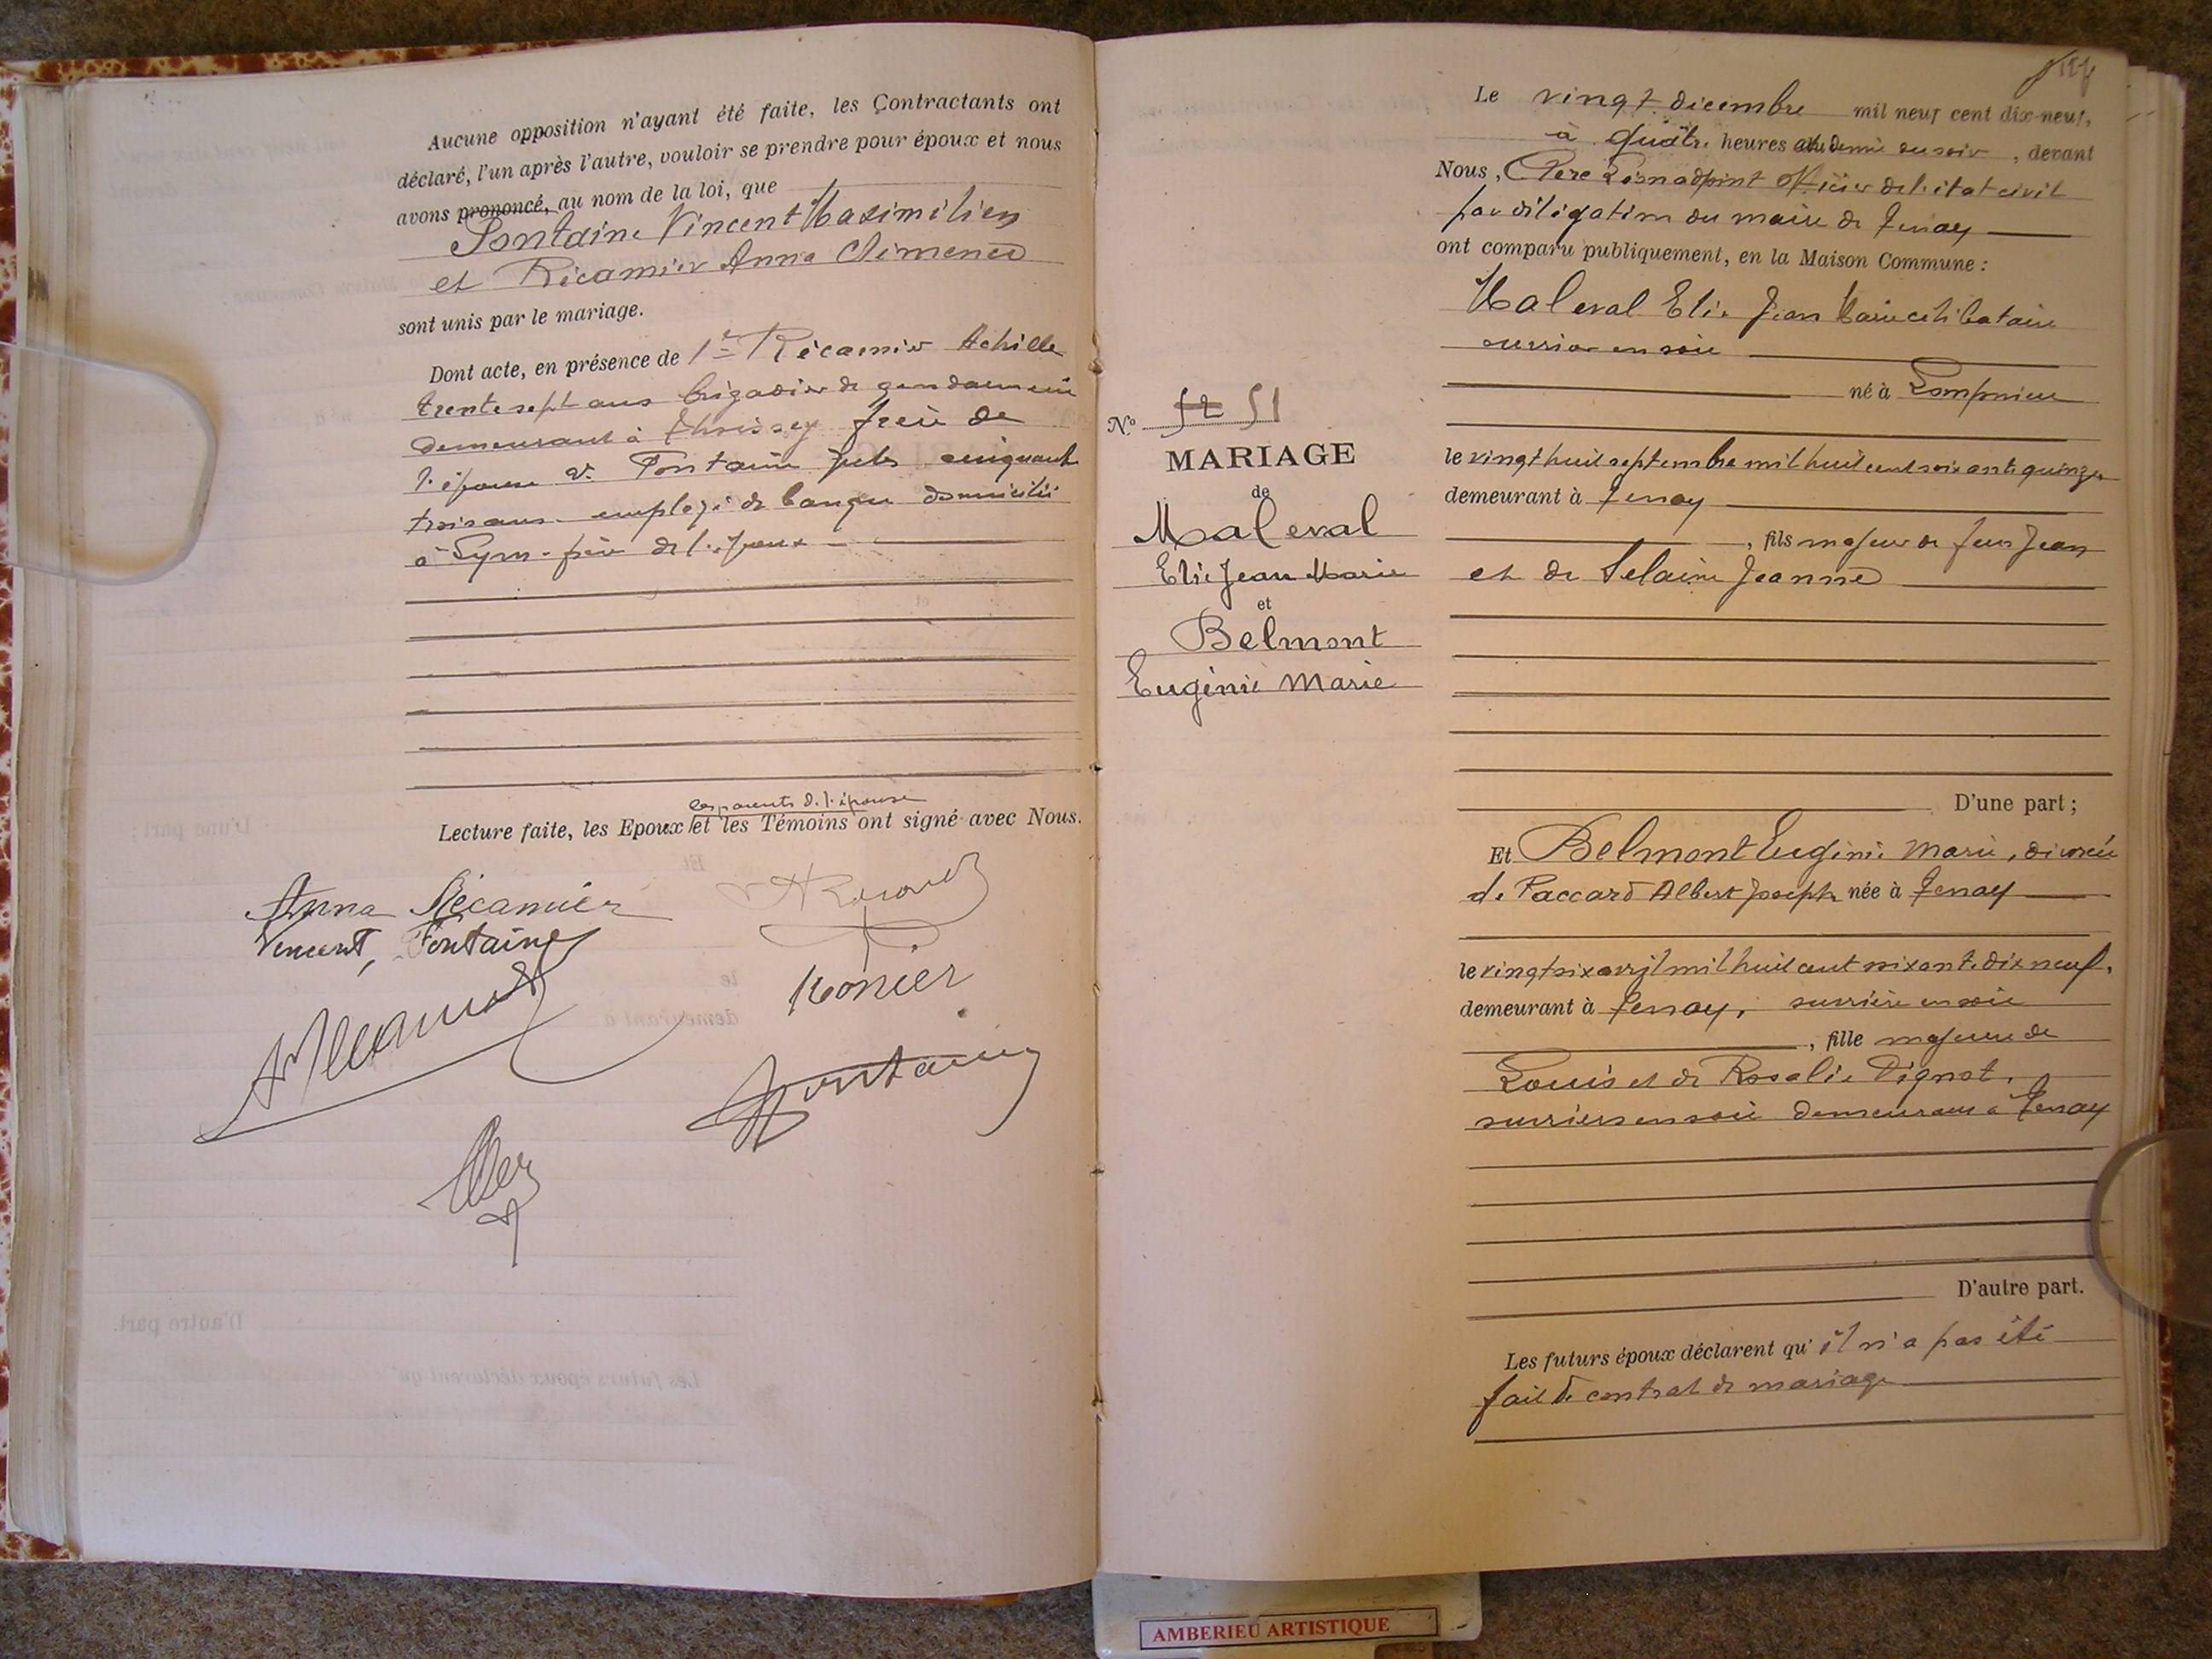 Aucune opposition n'ayant été faite, les Contractants ont
déclaré, l'un après l'autre, vouloir se prendre pour époux et nous
avons prononcé, au nom de la loi, que
Fontaine Vincent Maximilien
et Récamier Anna Climened
sont unis par le mariage.
Dont acte, en présence de 1er Récamier Achille
trente sept ans brigadier de gendarmerie
demeurant à Thoissey frère de
l'épouse 2e Fontaine Jules cinquante
trois ans employé de banque domicilié
à Lyon père de l'époux
les parents de l'épouse
Lecture faite, les Epoux et les Témoins ont signé avec Nous.
Anna Récamier
Vincent Fontaine
Fontaine
127
Le vingt décembre mil neuf cent dix-neuf,
à quatre heures et demie du soir, devant
Nous, Officier de l'état civil
par délégation du maire de Tenay
ont comparu publiquement, en la Maison Commune :
Maleval Elie Jean Marie célibataire
ouvrier en soie
né à Lompnieu
le vingt huit septembre mil huit cent soixante quinze
demeurant à Tenay
, fils majeur de feu Jean
et de Jeanne
D'une part ;
N° 52 51
MARIAGE
de
Maleval
Elie Jean Marie
et
Belmont
Eugénie Marie
Et Belmont Eugénie Marie, divorcée
de Paccard Albert Joseph née à Tenay
le vingt six avril mil huit cent soixante dix neuf,
demeurant à Tenay, ouvrière en soie
, fille majeure de
Louis et de Rosalie Pignot,
ouvriers en soie demeurant à Tenay
D'autre part.
Les futurs époux déclarent qu'il n'a pas été
fait de contrat de mariage
AMBERIEU ARTISTIQUE